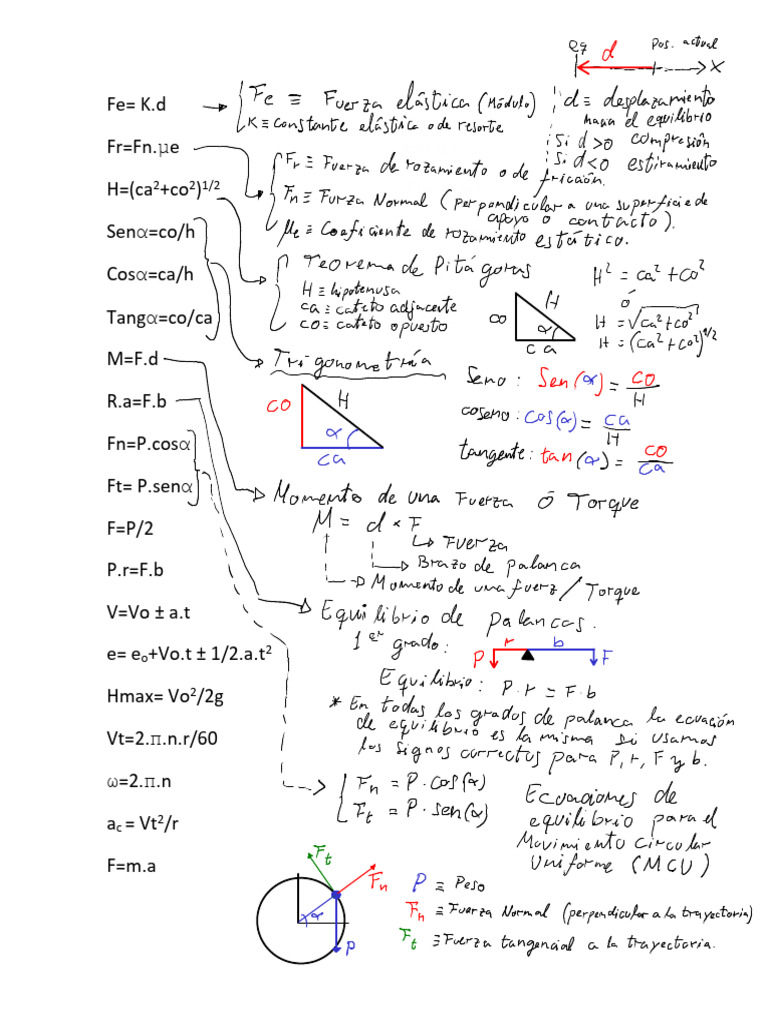 Eq
d
Pos. actual
X
Fe= K.d
Fe ≡ Fuerza elástica (Módulo)
K ≡ constante elástica o de resorte
d ≡ desplazamiento
hacia el equilibrio
Si d>0 compresión
Si d<0 estiramiento
Fr=Fn.µe
Fr ≡ Fuerza de rozamiento o de
fricción.
Fn ≡ Furza Normal (perpendicular a una superficie de
apoyo o contacto).
μe ≡ Coeficiente de rozamiento estático.
H=(ca²+co²)^1/2
Teorema de Pitágoras
H ≡ hipotenusa
ca ≡ cateto adjacente
co ≡ cateto opuesto
co
H
α
ca
H² = ca² + co²
ó
H = √ca² + co²
H = (ca² + co²)^1/2
Senα=co/h
Cosα=ca/h
Tangα=co/ca
Trigonometría
co
H
α
ca
Seno: Sen(α) = co/H
coseno: cos(α) = ca/H
tangente: tan(α) = co/ca
M=F.d
R.a=F.b
Fn=P.cosα
Ft= P.senα
Momento de una Fuerza ó Torque
M = d × F
Fuerza
Brazo de palanca
Momento de una fuerz / Torque
F=P/2
P.r=F.b
V=Vo ± a.t
Equilibrio de palancas.
1er grado:
P
r
b
F
Equilibrio: P.r = F.b
* En todas los grados de palanca la ecuación
de equilibrio es la misma si usamos
los signos correctos para P, r, F y b.
e= eo+Vo.t ± 1/2.a.t²
Hmax= Vo²/2g
Vt=2.π.n.r/60
ω=2.π.n
ac = Vt²/r
F=m.a
Fn = P.cos(α)
Ft = P.sen(α)
Ecuaciones de
equilibrio para el
Movimiento circular
Uniforme (MCU)
Ft
Fn
α
P
P ≡ Peso
Fn ≡ Fuerza Normal (perpendicular a la trayectoria)
Ft ≡ Fuerza tangencial a la trayectoria.